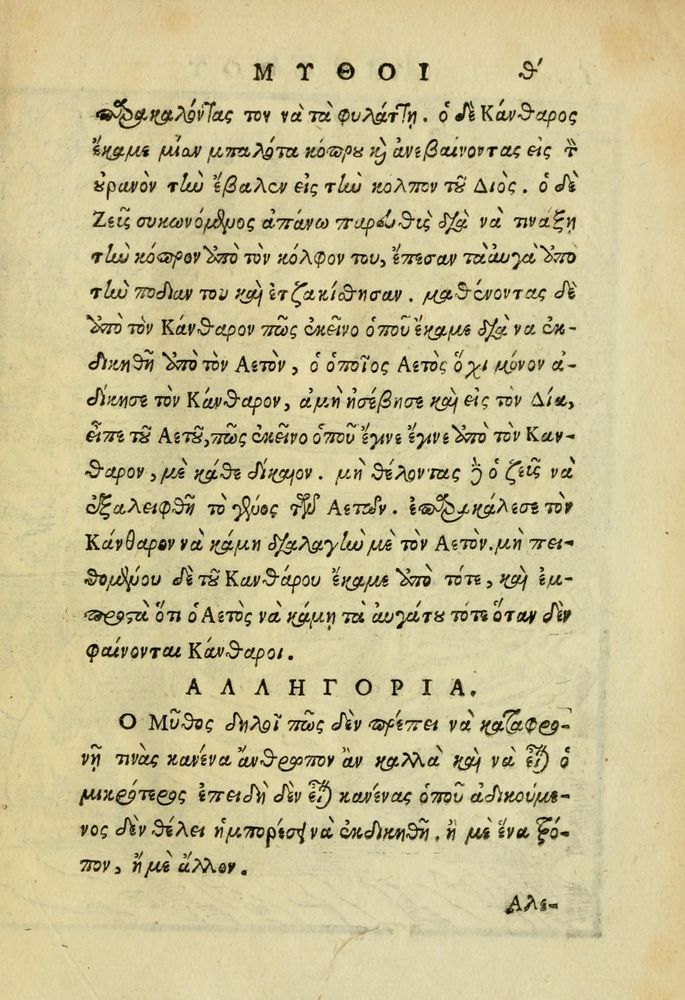 ΜΥΘΟΙ θ'
παρακαλόντας τον νὰ τὰ φυλάττῃ. ὁ δὲ Κάνθαρος
ἔκαμε μίαν μπαλότα κόπρου καὶ ἀνεβαίνοντας εἰς τ
ὐρανὸν τὴν ἔβαλεν εἰς τὴν κόλπον τοῦ Διός. ὁ δὲ
Ζεῖς συκωνόμενος ἀπάνω παρευθὶς διὰ νὰ τινάξῃ
τὴν κόπρον ἀπὸ τὸν κόλφον του, ἔπεσαν τὰ ἀυγὰ ἀπὸ
τὴν ποδιαν του καὶ ἐτζακίθησαν. μαθένοντας δὲ
ἀπὸ τὸν Κάνθαρον πῶς ἐκεῖνο ὁποῦ ἔκαμε διὰ να ἐκ-
δικηθῆ ἀπὸ τὸν Αετὸν, ὁ ὁποῖος Αετὸς ὄχι μόνον ἀ-
δίκησε τὸν Κάνθαρον, ἀμὴ ἠσέβησε καὶ εἰς τὸν Δία,
εἶπε τοῦ Αετοῦ, πῶς ἐκεῖνο ὁποῦ ἔγινε ἔγινε ἀπὸ τὸν Καν-
θαρον, μὲ κάθε δίκαιον. μὴ θέλοντας ὁ ζεῖς νὰ
ἐξαλειφθῆ τὸ γένος τῶν Αετῶν. ἐπαρακάλεσε τὸν
Κάνθαρον νὰ κάμη διαλαγὴν μὲ τὸν Αετὸν. μὴ πει-
θομένου δὲ τοῦ Κανθάρου ἔκαμε ἀπὸ τότε, καὶ ἐμ-
προστὰ ὅτι ὁ Αετὸς νὰ κάμῃ τὰ ἀυγάτου τότε ὅταν δὲν
φαίνονται Κάνθαροι.
ΑΛΛΗΓΟΡΙΑ.
Ο Μῦθος δηλοῖ πῶς δὲν πρέπει νὰ καταφρο-
νῇ τινὰς κανένα ἄνθρωπον ἂν καλλὰ καὶ νὰ εἶναι ὁ
μικρότερος ἐπειδὴ δὲν εἶναι κανένας ὁποῦ ἀδικούμε-
νος δὲν θέλει ἠμπορέσει νὰ ἐκδικηθῆ, ἢ μὲ ἕνα τρό-
πον, ἢ μὲ ἄλλον.
Αλε-